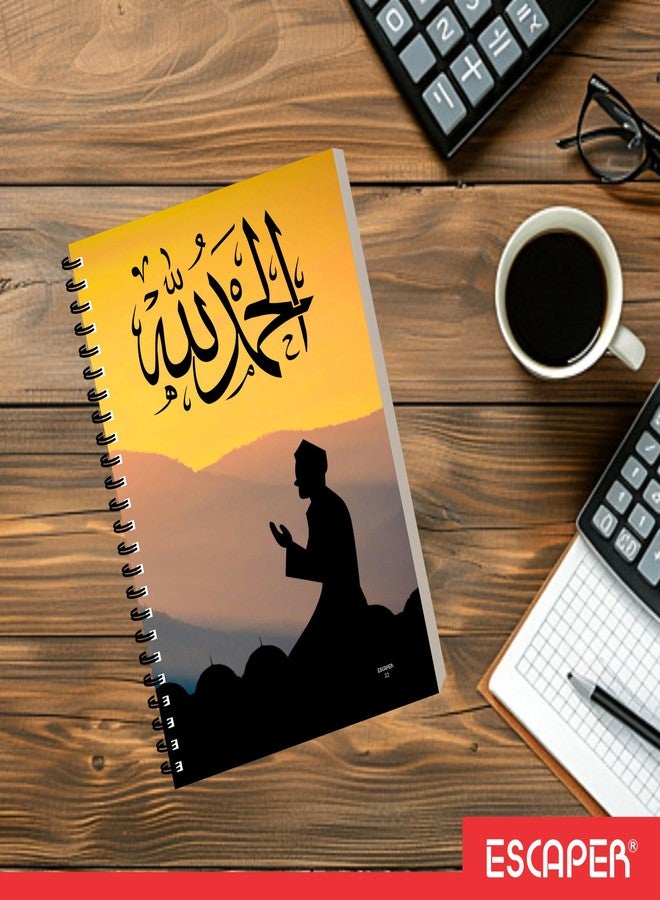 الحمد لله
ESCAPER
22
ESCAPER®